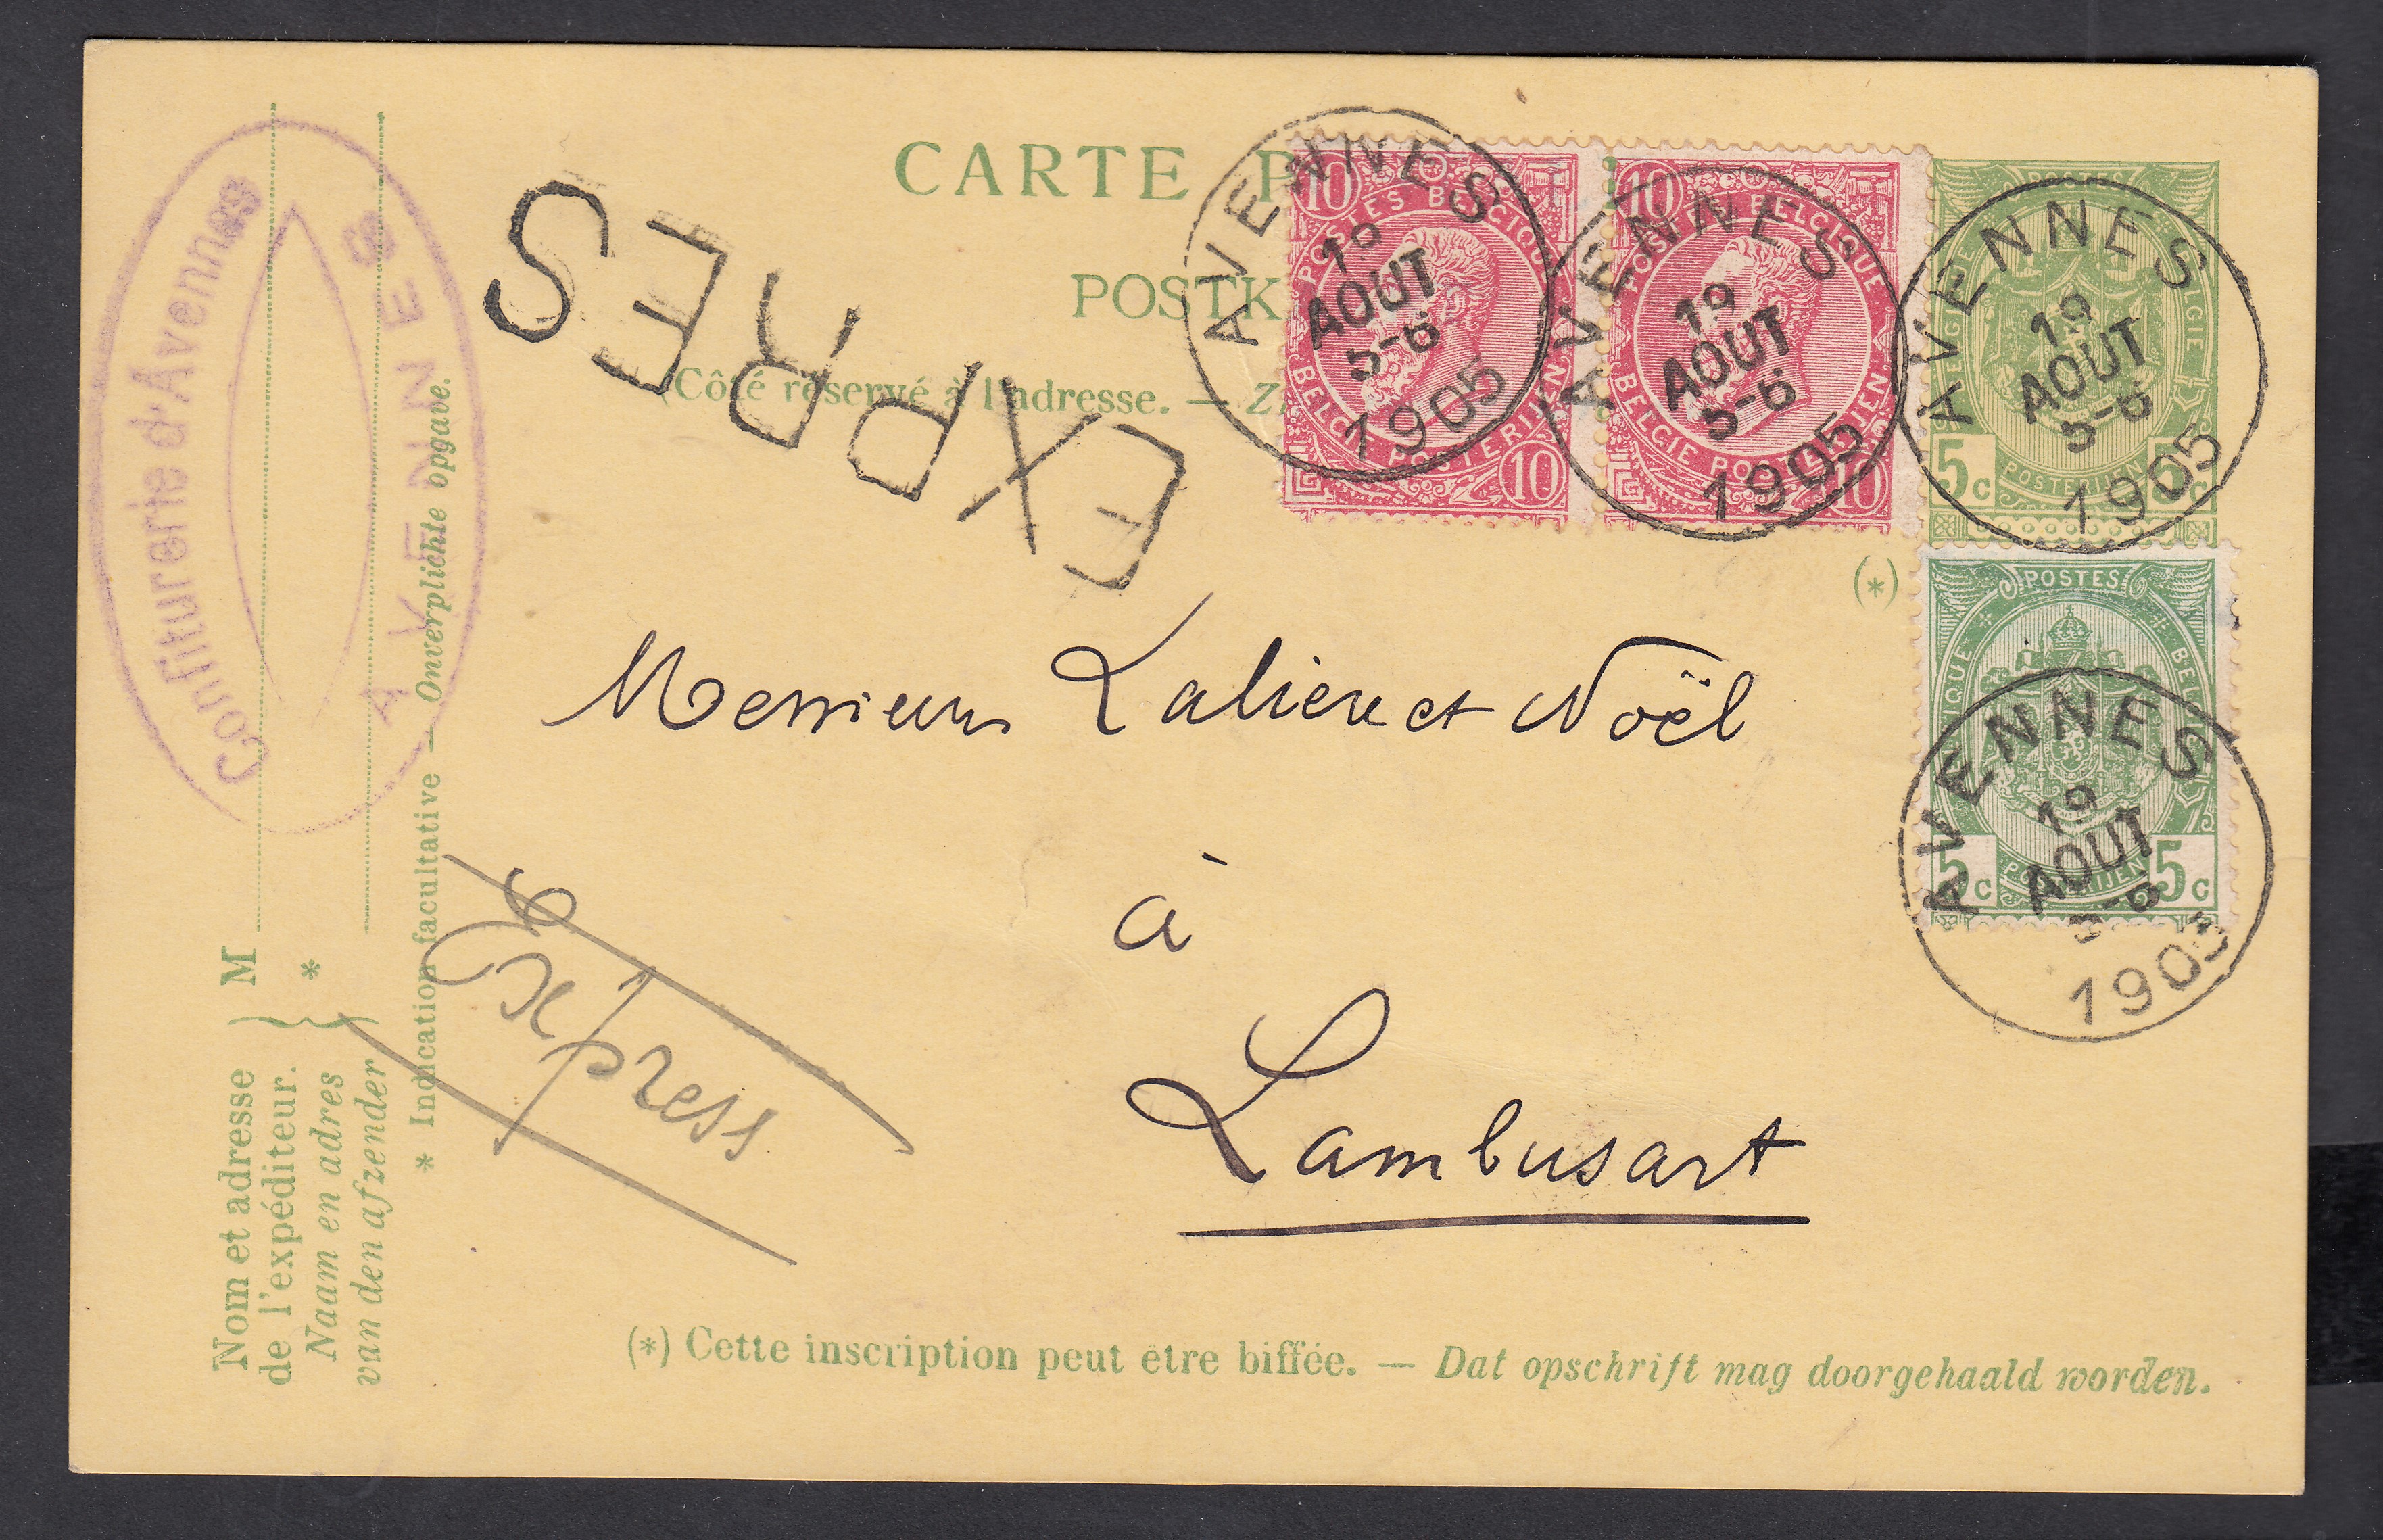 CARTE P
POSTK
(Côté réservé à l'adresse. —
EXPRES
Confiturerie d'Avennes
AVENNES
AVENNES
19
AOUT
5-6
1905
AVENNES
19
AOUT
5-6
1905
AVENNES
19
AOUT
5-6
1905
AVENNES
19
AOUT
5-6
1905
10
POSTES BELGIQUE
BELGIE POSTERIJEN
10
10
POSTES BELGIQUE
BELGIE POSTERIJEN
10
BELGIE
5c POSTERIJEN 5c
POSTES
5c POSTERIJEN 5c
(*)
Messieurs Lalieu et Noël
à
Lambusart
Express
M
*
Nom et adresse
de l'expéditeur.
Naam en adres
van den afzender
* Indication facultative — Onverplichte opgave.
(*) Cette inscription peut être biffée. — Dat opschrift mag doorgehaald worden.